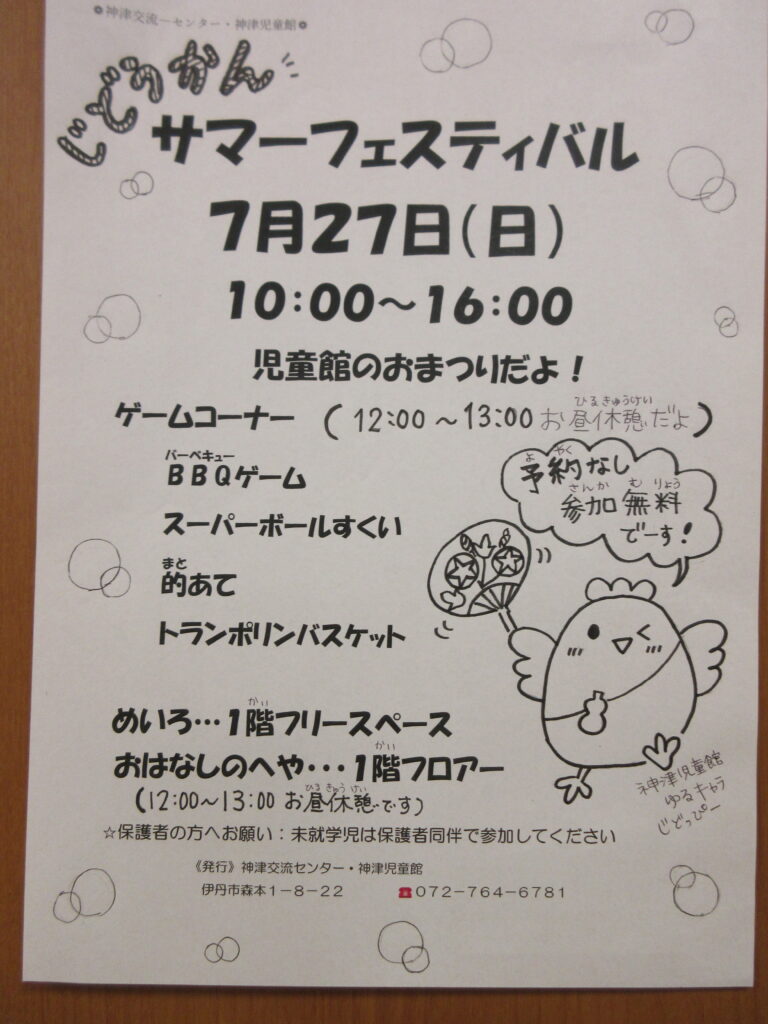 神津交流センター・神津児童館
じどうかん
サマーフェスティバル
7月27日(日)
10:00～16:00
児童館のおまつりだよ！
ゲームコーナー (12:00～13:00 お昼休憩だよ)
ひるきゅうけい
バーベキュー
BBQゲーム
スーパーボールすくい
まと
的あて
トランポリンバスケット
よ やく
予約なし
さんか む りょう
参加無料
でーす!
かい
めいろ…1階フリースペース
かい
おはなしのへや・・・1階フロアー
ひる きゅう けい
(12:00～13:00 お昼休憩です)
神津児童館
ゆるキャラ
じどっぴー
☆保護者の方へお願い：未就学児は保護者同伴で参加してください
《発行》神津交流センター・神津児童館
伊丹市森本1－8－22 ☎072－764－6781